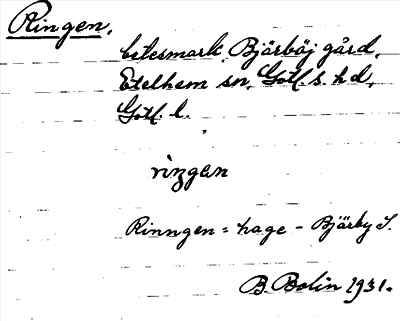 Ringen.
betesmark, Bjärböj gård,
Etelhem sn, Gotl. s. hd,
Gotl. l.
ringen
Rinngen = hage - Bjärby S.
B. Bolin 1931.